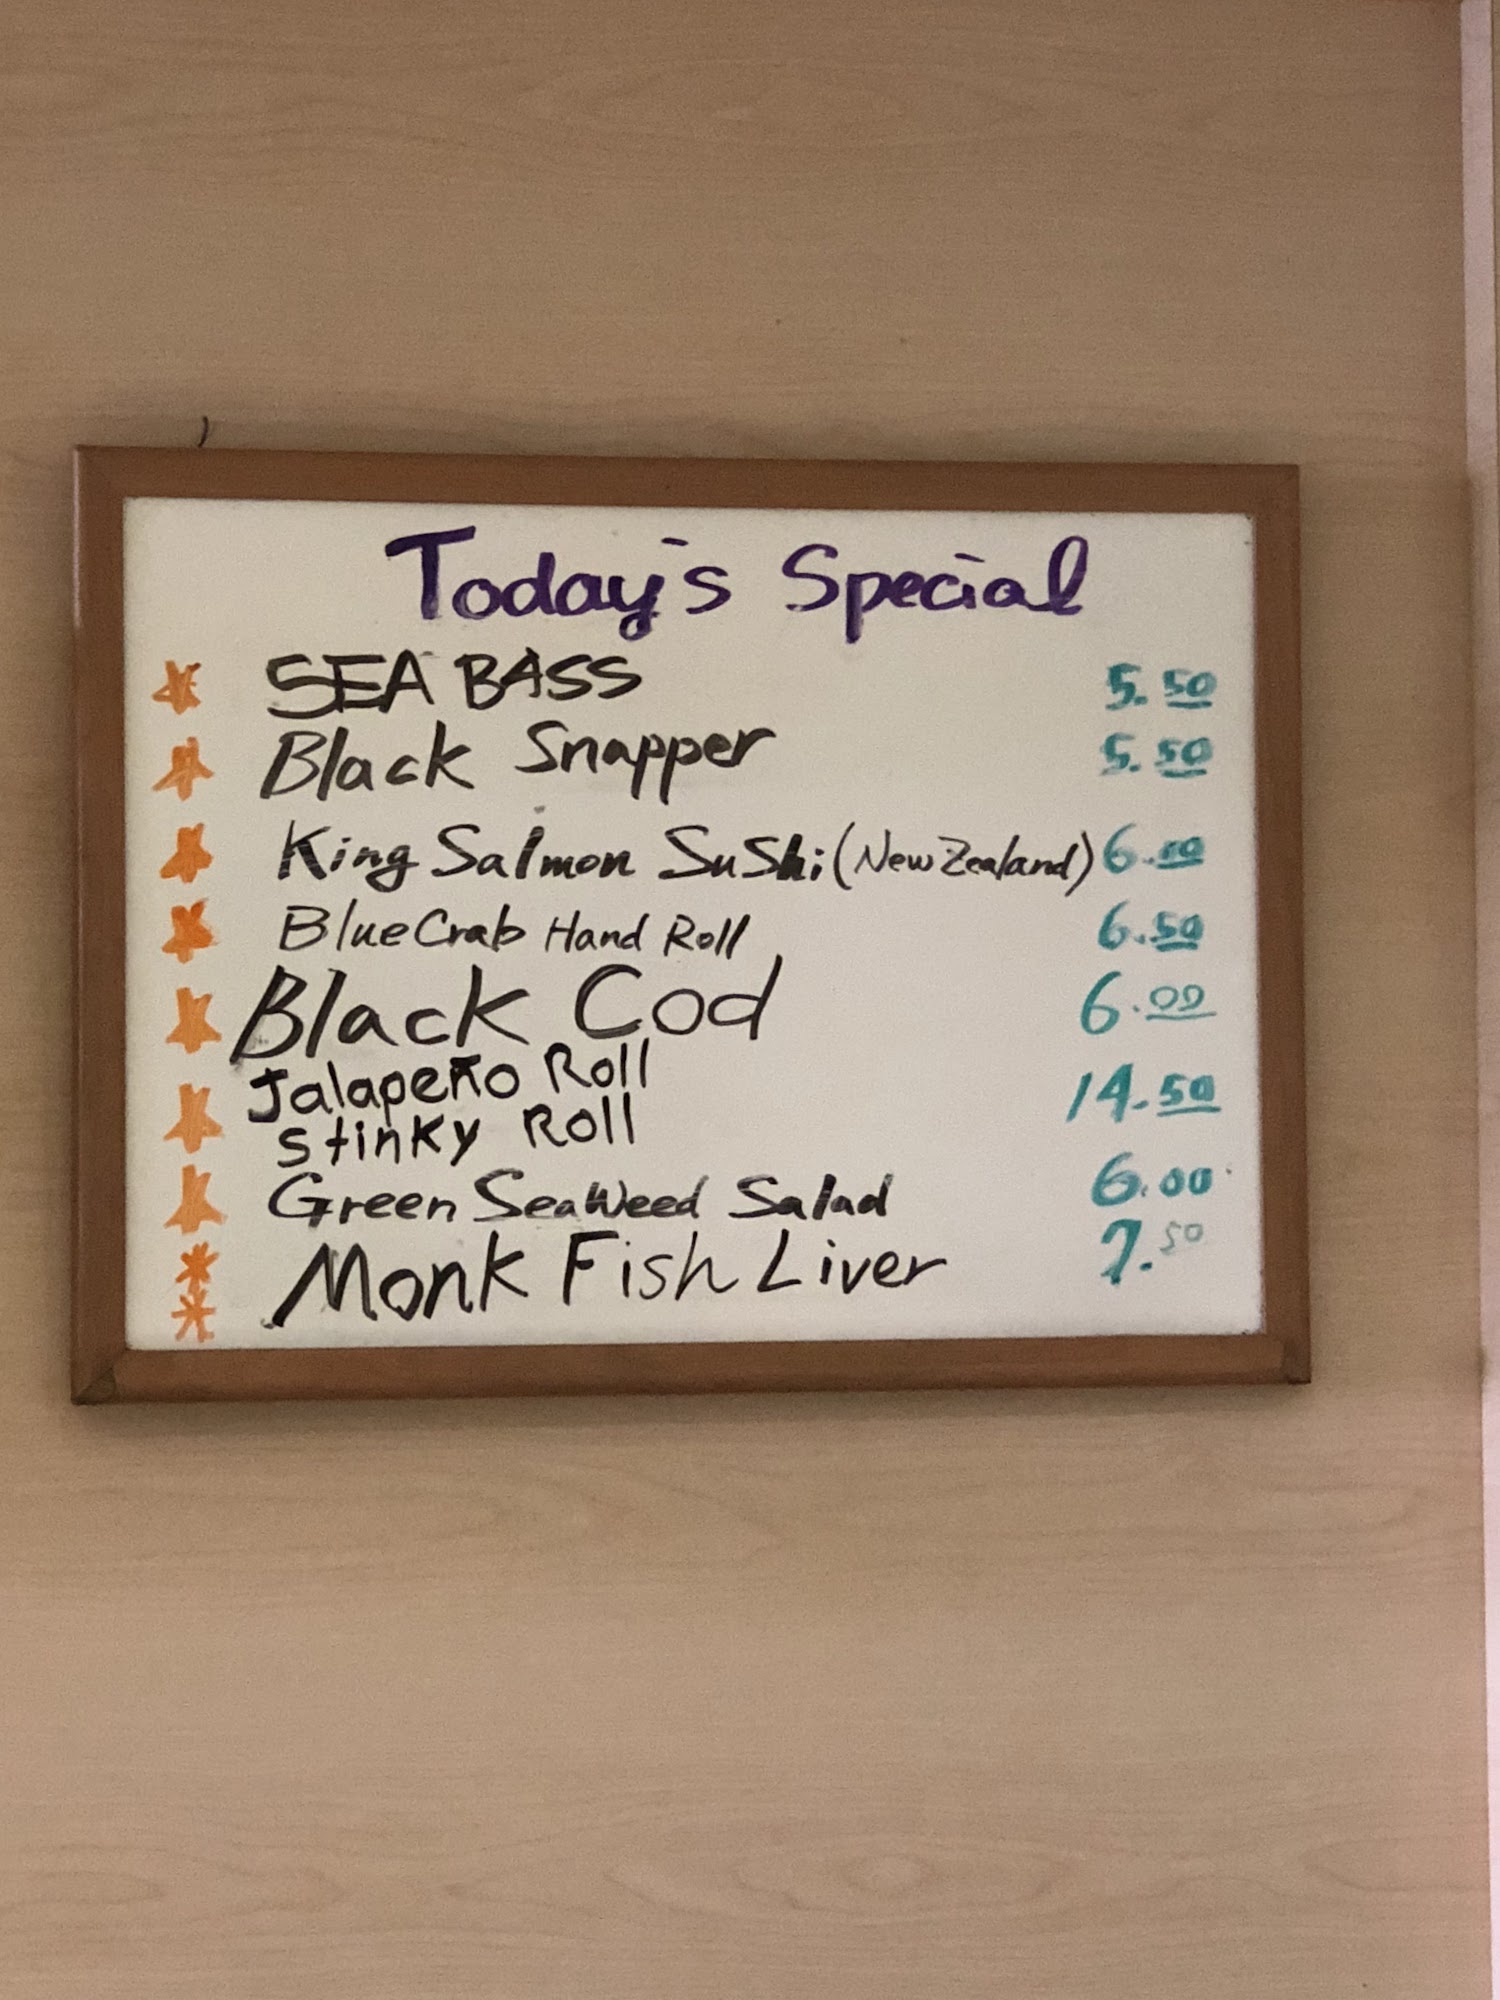 Today's Special
SEA BASS 5.50
Black Snapper 5.50
King Salmon SuShi (New Zealand) 6.00
Blue Crab Hand Roll 6.50
Black Cod 6.00
Jalapeño Roll
Stinky Roll 14.50
Green SeaWeed Salad 6.00
Monk Fish Liver 7.50